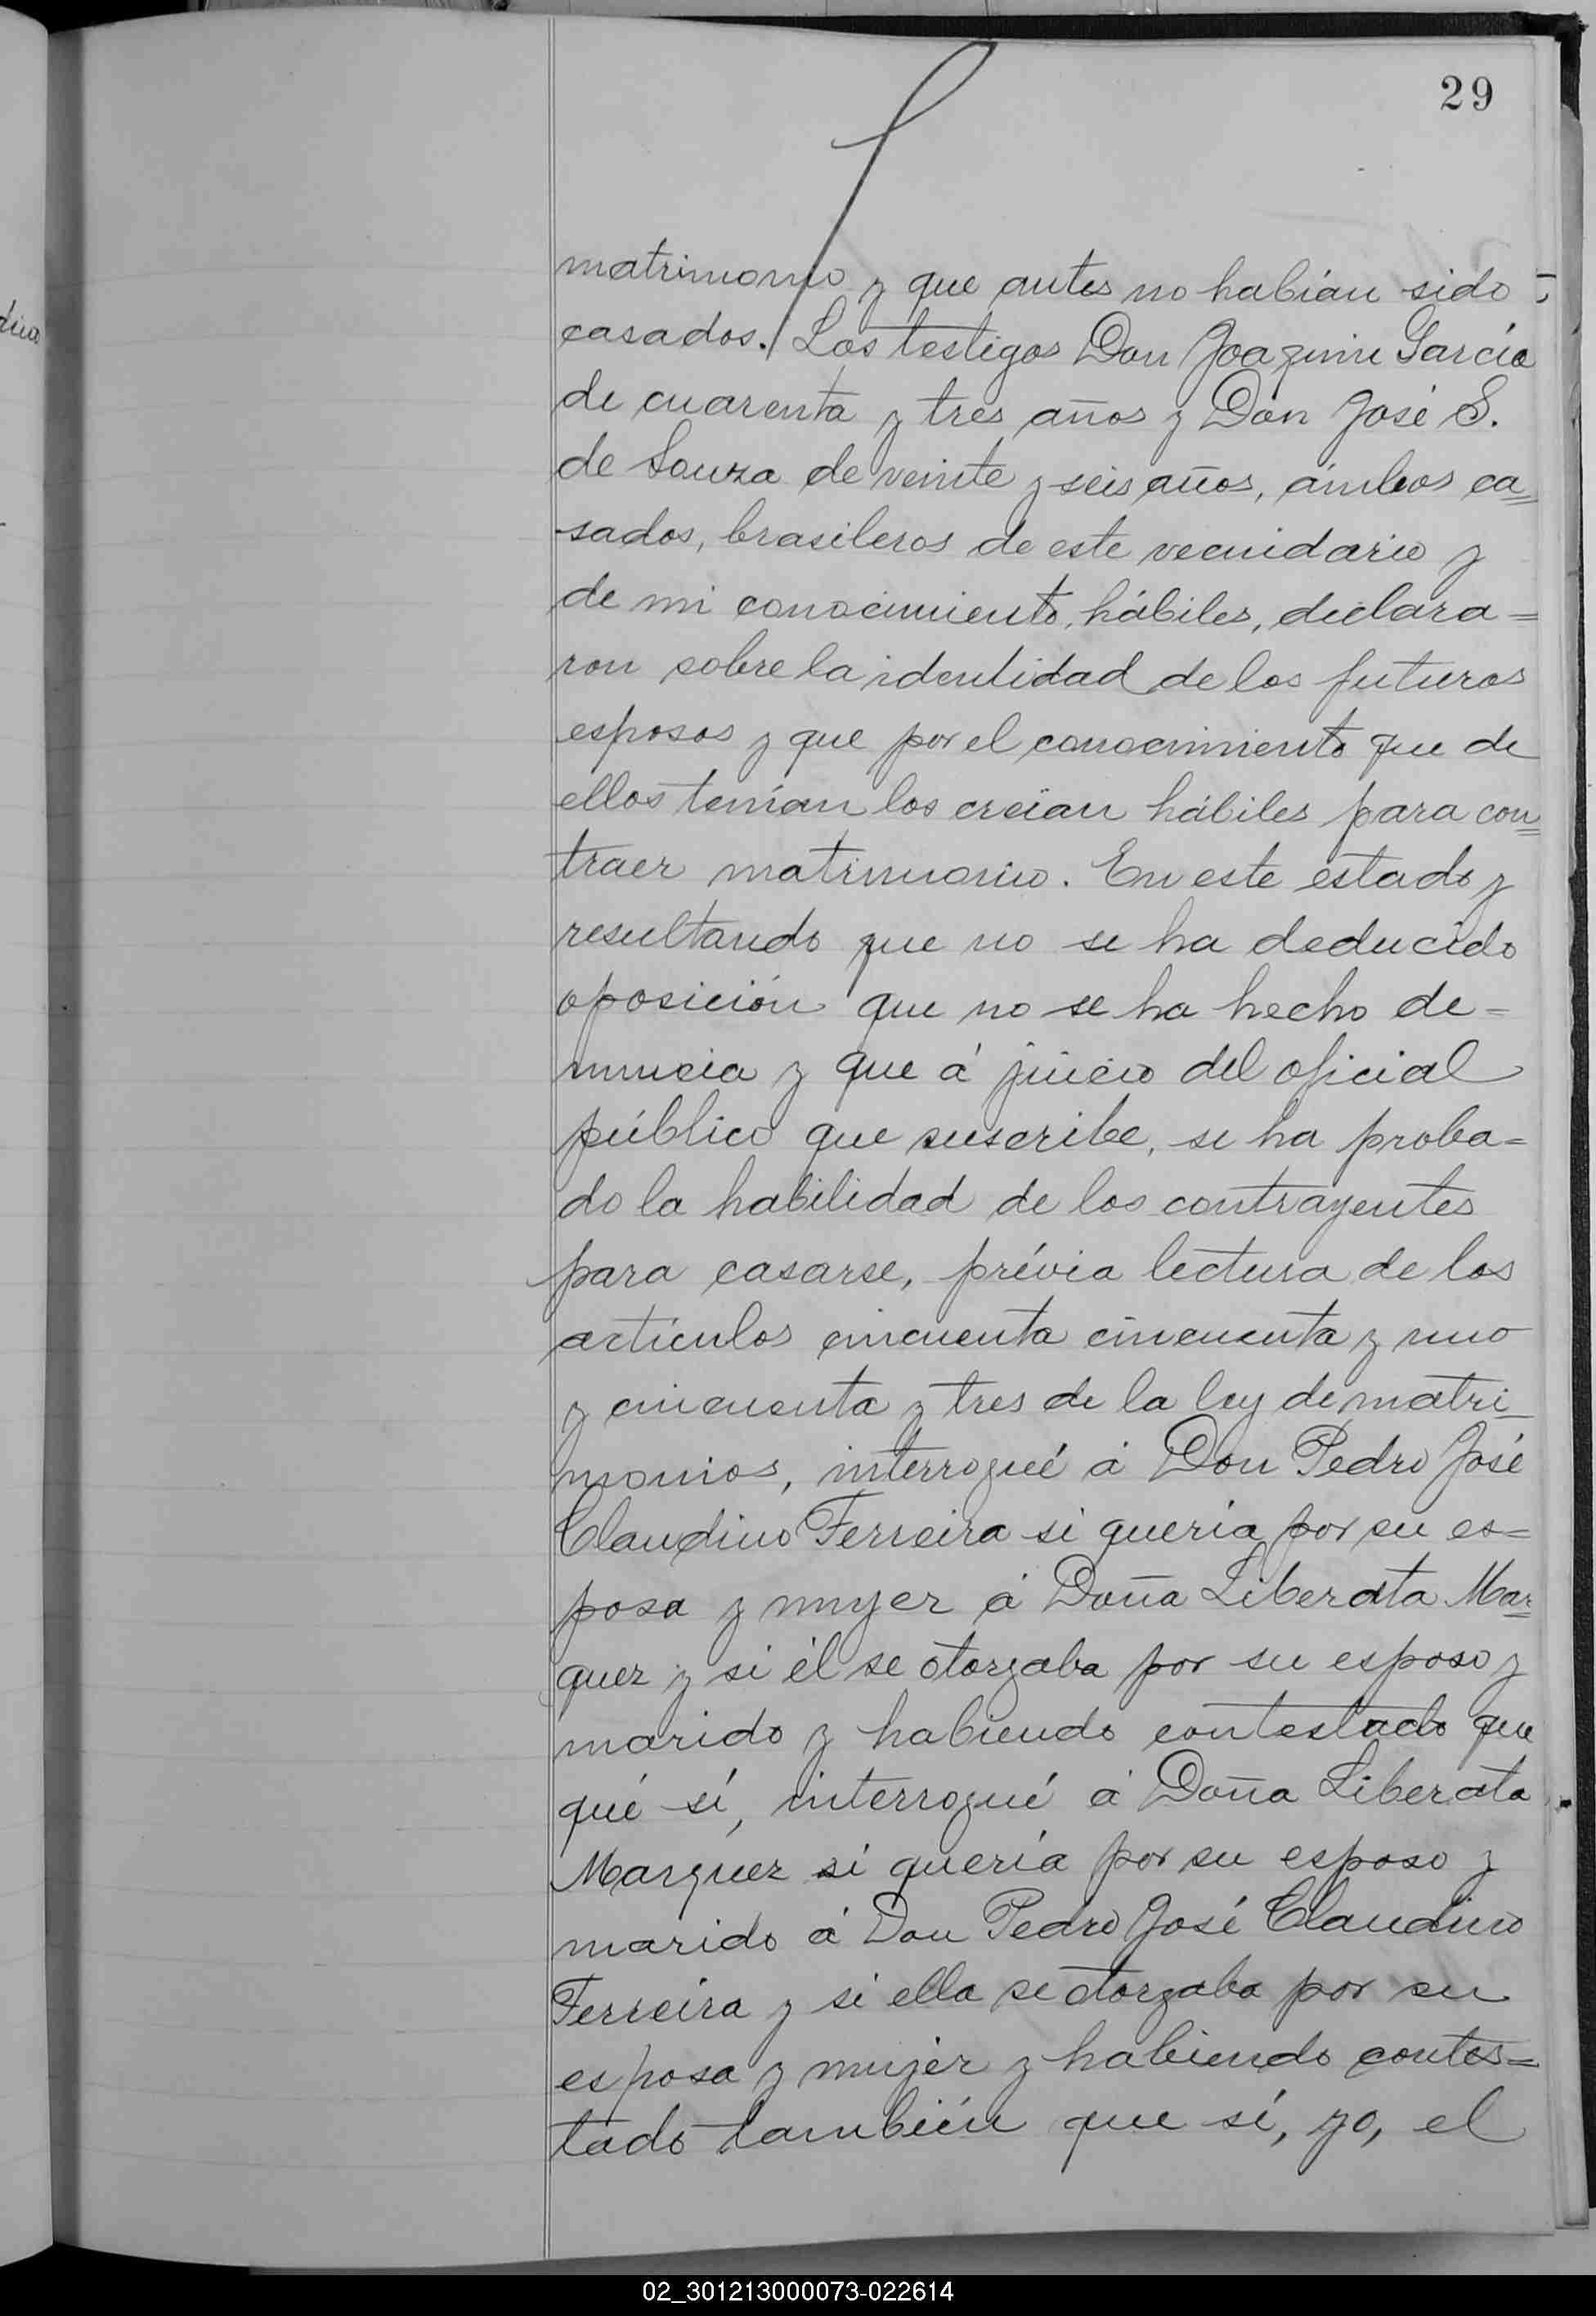 29
matrimonio y que antes no habían sido
casados. Los testigos Don Joaquin García
de cuarenta y tres años y Don José S.
de Souza de veinte y seis años, ámbos ca=
sados, brasileros de este vecindario y
de mi conocimiento, hábiles, declara=
ron sobre la identidad de los futuros
esposos y que por el conocimiento que de
ellos tenían los creían hábiles para con=
traer matrimonio. En este estado y
resultando que no se ha deducido
oposición que no se ha hecho de=
nuncia y que á juicio del oficial
público que suscribe, se ha proba=
do la habilidad de los contrayentes
para casarse, prévia lectura de los
artículos cincuenta cincuenta y uno
y cincuenta y tres de la ley de matri_
monios, interrogué á Don Pedro José
Claudino Ferreira si quería por su es=
posa y mujer á Doña Liberata Mar=
quez y si él se otorgaba por su esposo y
marido y habiendo contestado que
qué sí, interrogué á Doña Liberata
Marquez si quería por su esposo y
marido á Don Pedro José Claudino
Ferreira y si ella se otorgaba por su
esposa y mujer y habiendo contes=
tado también que sí, yo, el
02_301213000073-022614